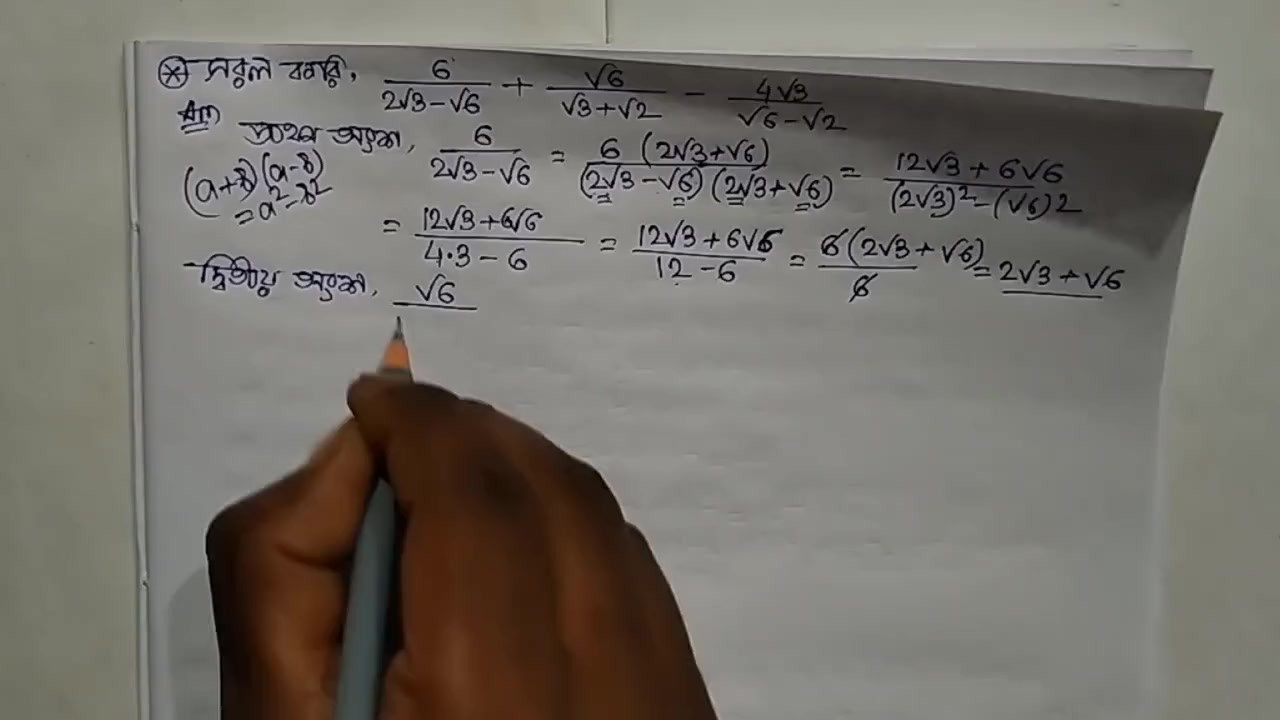 ⊛ সরল করি, 6/(2√3-√6) + √6/(√3+√2) - 4√3/(√6-√2)
Ans প্রথম অংশ, 6/(2√3-√6) = 6(2√3+√6)/(2√3-√6)(2√3+√6) = 12√3+6√6/(2√3)²-(√6)2
(a+b)(a-b)
=a²-b²
= 12√3+6√6/4·3-6 = 12√3+6√6/12-6 = 6(2√3+√6)/6 = 2√3+√6
দ্বিতীয় অংশ, √6